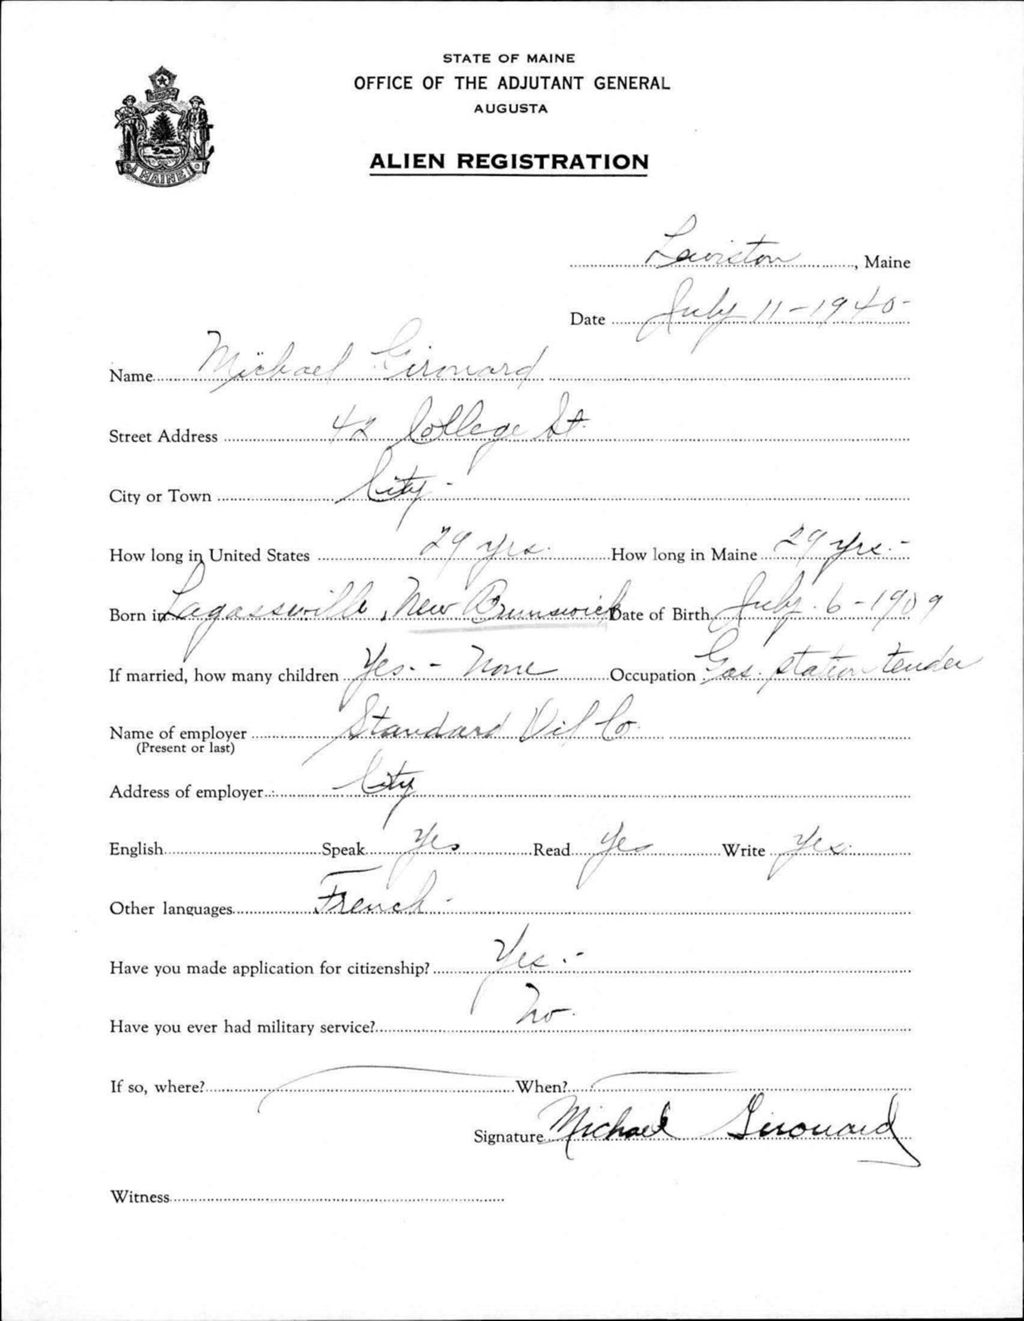 STATE OF MAINE
OFFICE OF THE ADJUTANT GENERAL
AUGUSTA
MAINE
ALIEN REGISTRATION
Lewiston, Maine
Date July 11-1940-
Name Michael Girouard
Street Address 42 College St.
City or Town City-
How long in United States 29 yrs. How long in Maine 29 yrs.-
Born in Lagassville, New Brunswick Date of Birth July 6-1909
If married, how many children Yes.- None Occupation Gas. station tender
Name of employer Standard Oil Co.
(Present or last)
Address of employer City
English Speak Yes Read Yes Write Yes.
Other languages French-
Have you made application for citizenship? Yes.-
Have you ever had military service? No.
If so, where? When?
Signature Michael Girouard
Witness